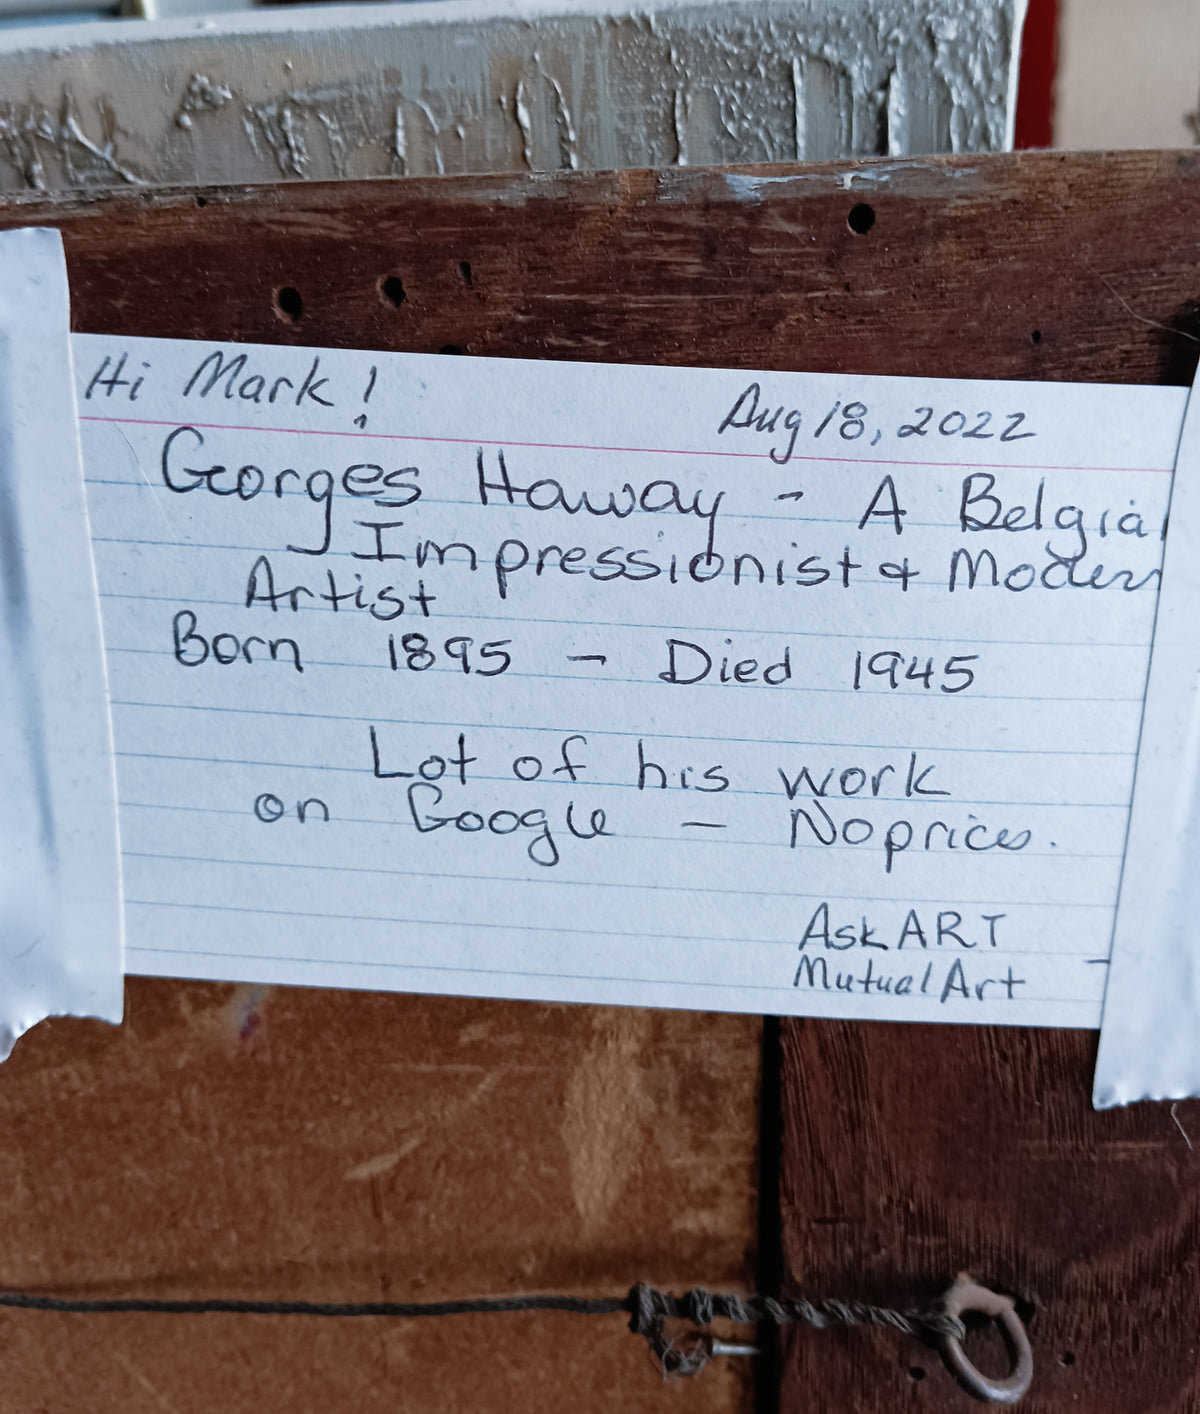 Hi Mark!
Aug 18, 2022
Georges Haway - A Belgia
Impressionist & Modern
Artist
Born 1895 - Died 1945
Lot of his work
on Google - No prices.
AskART
MutualArt -